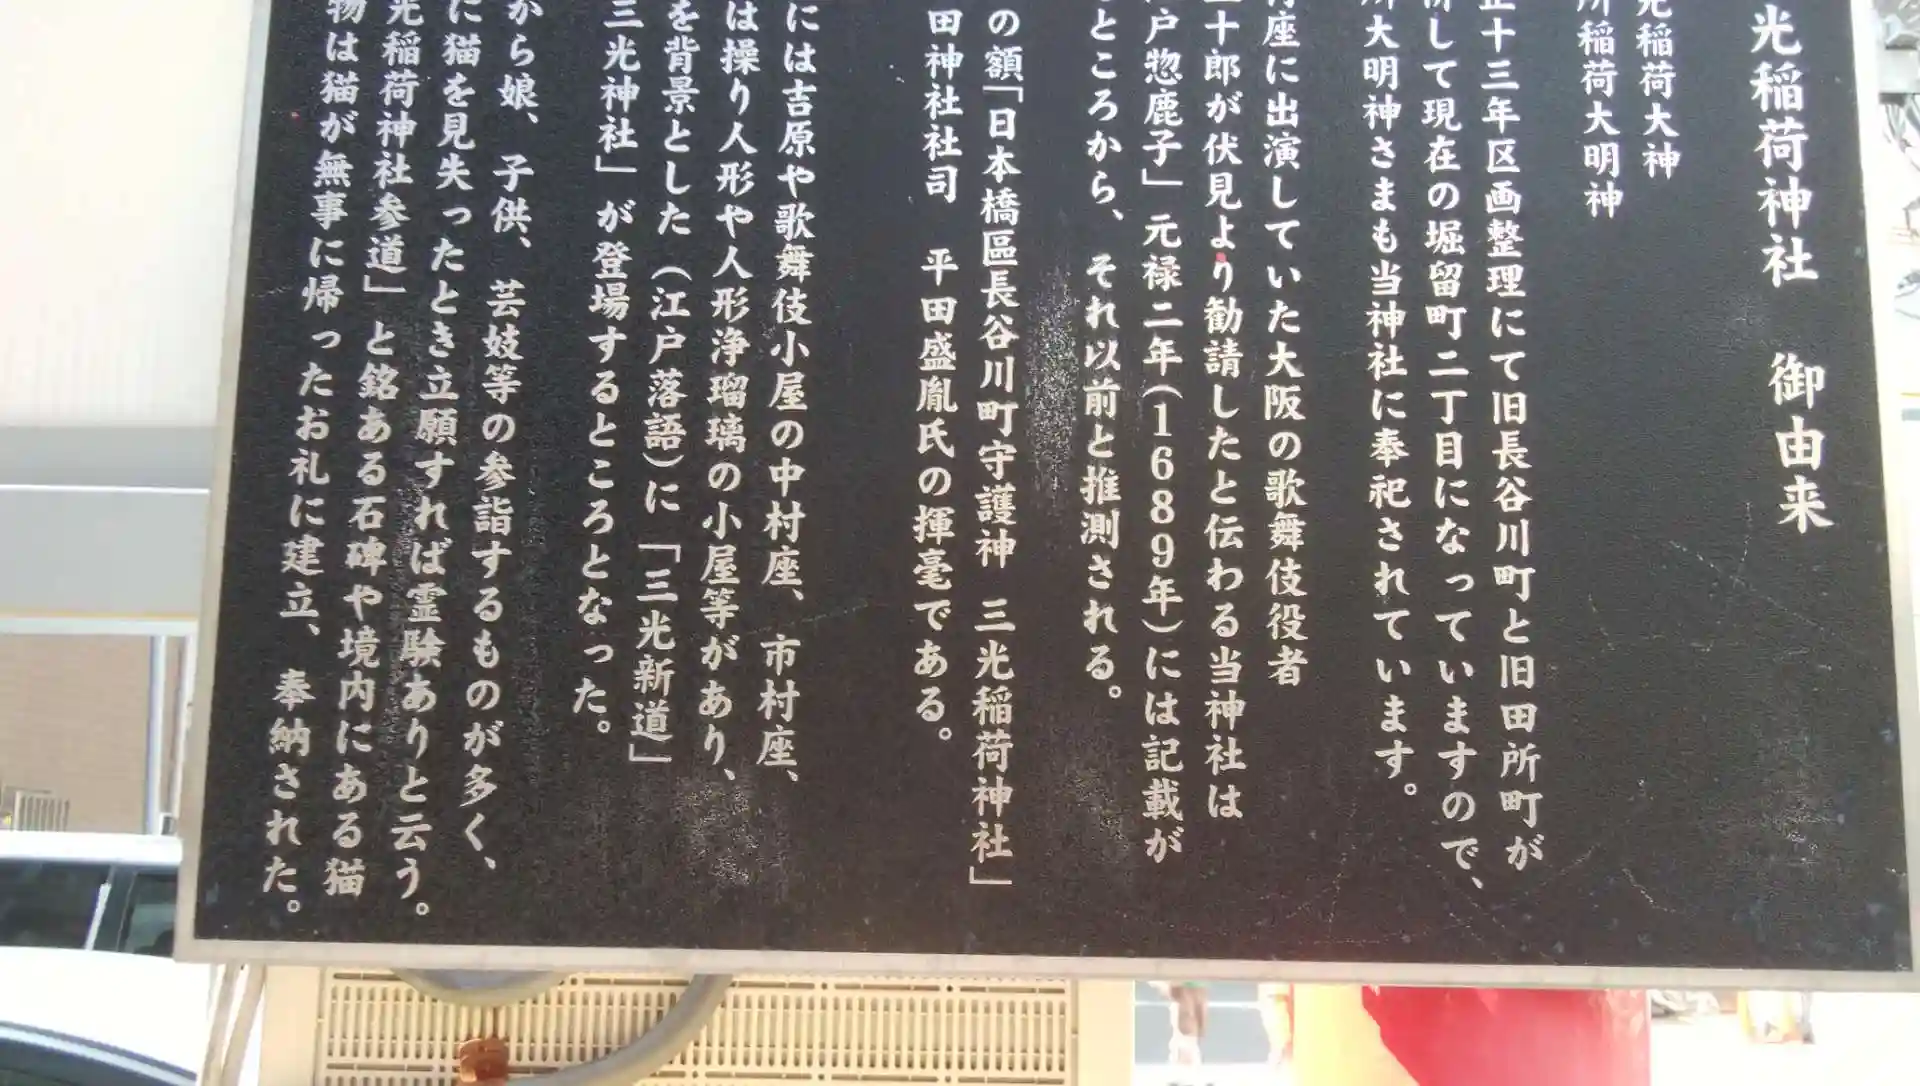 光稲荷神社　御由来
光稲荷大神
所稲荷大明神
正十三年区画整理にて旧長谷川町と旧田所町が
併して現在の堀留町二丁目になっていますので、
所大明神さまも当神社に奉祀されています。
村座に出演していた大阪の歌舞伎役者
十郎が伏見より勧請したと伝わる当神社は
戸惣鹿子」元禄二年(1689年)には記載が
ところから、それ以前と推測される。
の額「日本橋區長谷川町守護神　三光稲荷神社」
田神社社司　平田盛胤氏の揮毫である。
には吉原や歌舞伎小屋の中村座、市村座、
は操り人形や人形浄瑠璃の小屋等があり、
を背景とした(江戸落語)に「三光新道」
三光神社」が登場するところとなった。
から娘、子供、芸妓等の参詣するものが多く、
に猫を見失ったとき立願すれば霊験ありと云う。
光稲荷神社参道」と銘ある石碑や境内にある猫
物は猫が無事に帰ったお礼に建立、奉納された。